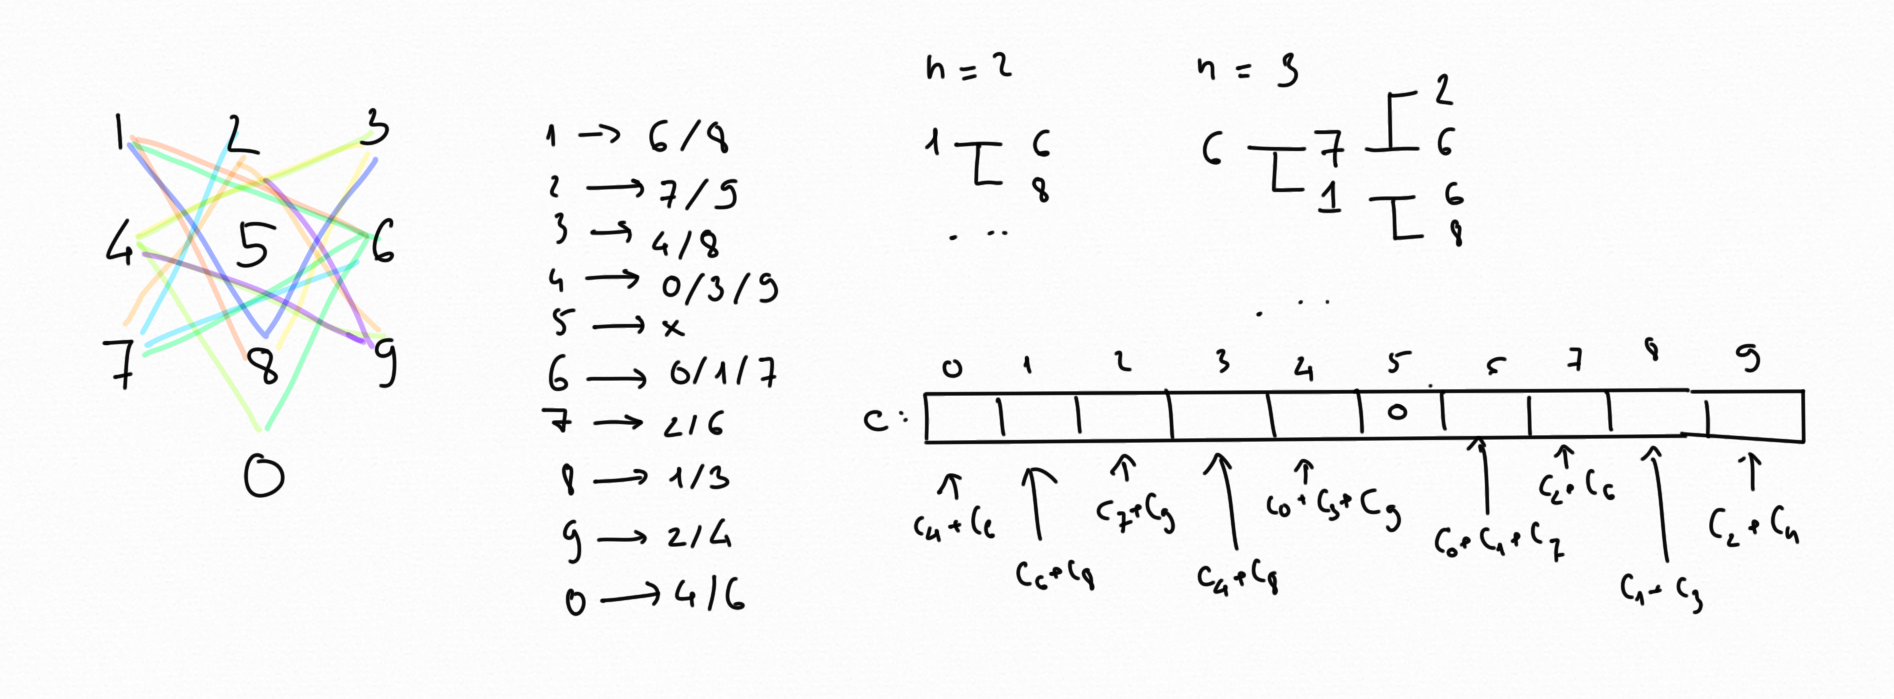 1 2 3
4 5 6
7 8 9
0
1 → 6/8
2 → 7/9
3 → 4/8
4 → 0/3/9
5 → x
6 → 0/1/7
7 → 2/6
8 → 1/3
9 → 2/4
0 → 4/6
n = 2
1 6
8
. ..
n = 3
2
6 7 6
1 6
8
. . .
0 1 2 3 4 5 6 7 8 9
C: 0
C4+C6
C6+C8
C7+C9
C4+C8
C0+C3+C9
C0+C1+C7
C2+C6
C1+C3
C2+C4